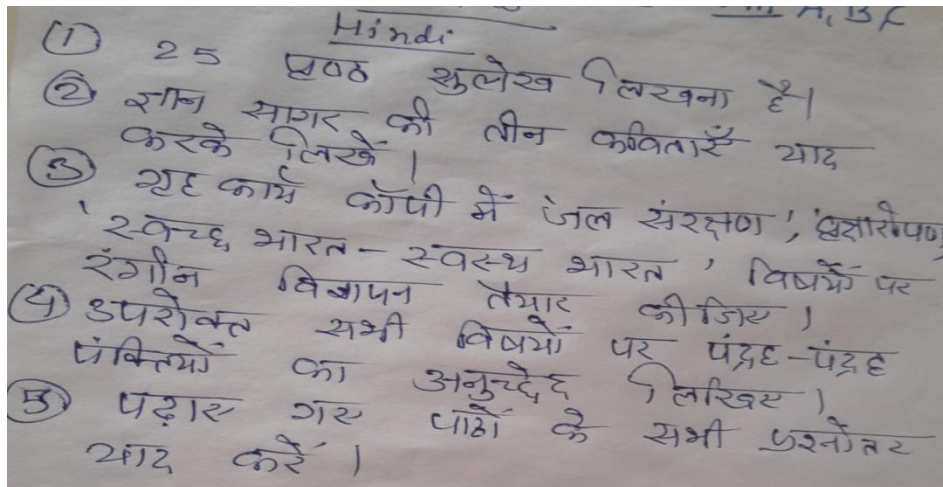 VIII A, B, C
Hindi
① 25 पृष्ठ सुलेख लिखना है।
② ज्ञान सागर की तीन कविताएँ याद
करके लिखें।
③ गृह कार्य कॉपी में 'जल संरक्षण', 'वृक्षारोपण'
'स्वच्छ भारत - स्वस्थ भारत' विषयों पर
रंगीन विज्ञापन तैयार कीजिए।
④ उपरोक्त सभी विषयों पर पंद्रह-पंद्रह
पंक्तियों का अनुच्छेद लिखिए।
⑤ पढ़ाए गए पाठों के सभी प्रश्नोतर
याद करें।